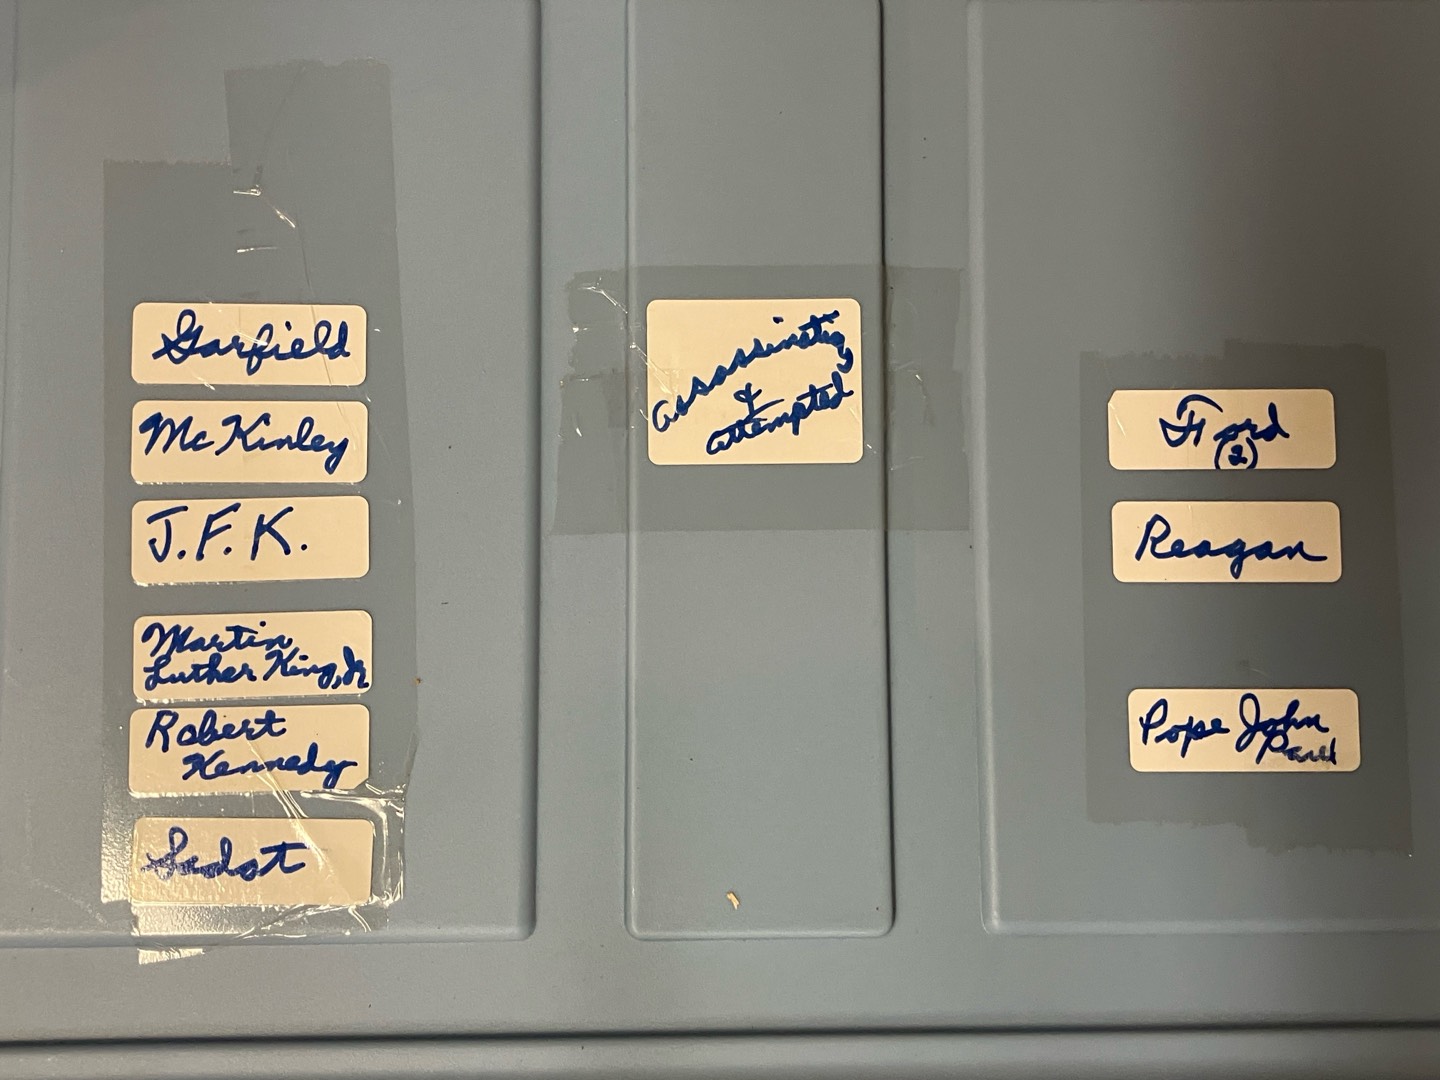 Garfield
McKinley
J.F.K.
Martin
Luther King, Jr
Robert
Kennedy
Sadat
assassinations
&
attempted
Ford
(2)
Reagan
Pope John
Paul